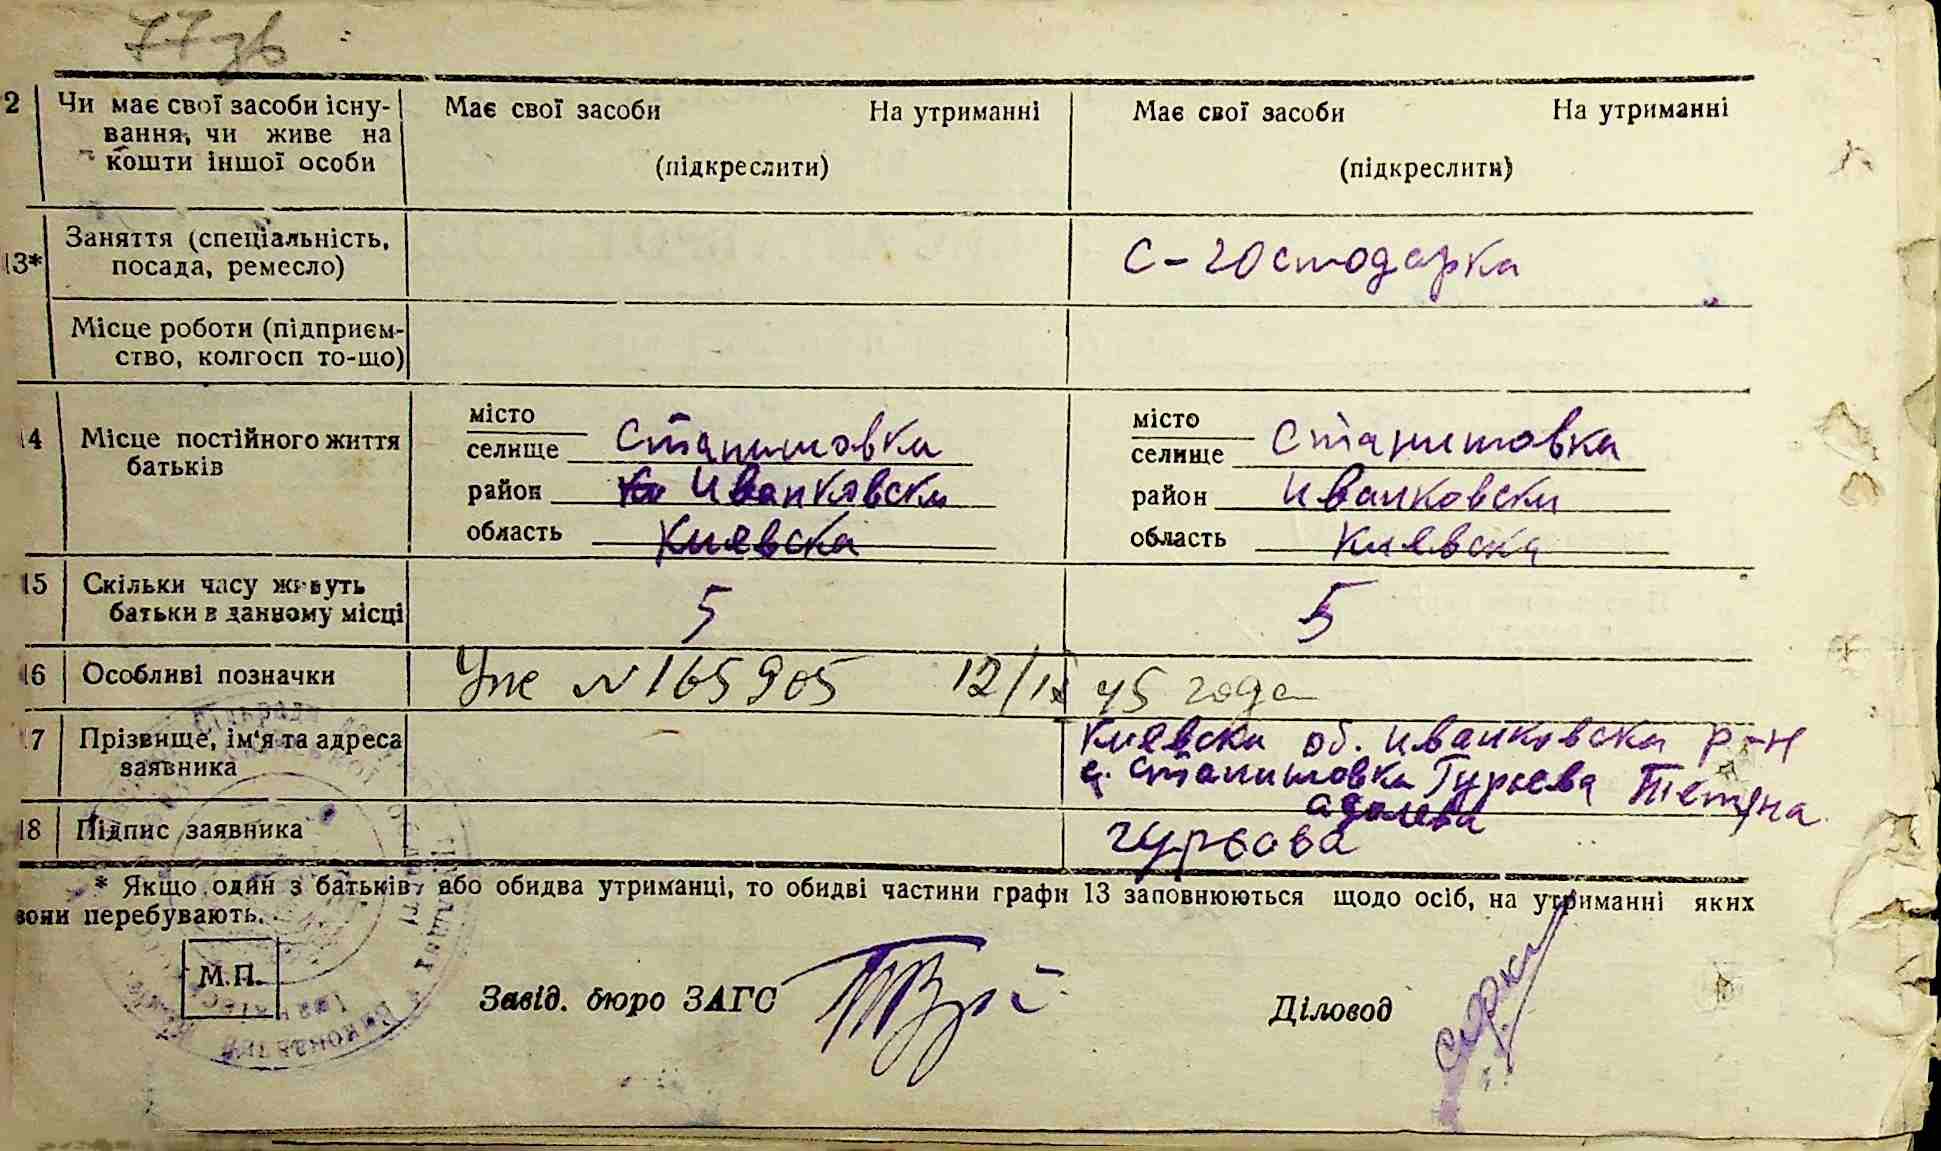 77 зв
2 Чи має свої засоби існу- Має свої засоби На утриманні Має свої засоби На утриманні
вання, чи живе на
кошти іншої особи (підкреслити) (підкреслити)
13* Заняття (спеціальність,
посада, ремесло) С-господарка
Місце роботи (підприєм-
ство, колгосп то-що)
14 Місце постійного життя
батьків
місто місто
селище Станишовка селище Станишовка
район Иванковски район Иванковски
область Киевска область Киевска
15 Скільки часу живуть
батьки в данному місці 5 5
16 Особливі позначки N 165905 12/ 45 года
17 Прізвище, ім'я та адреса Киевски об. Иванковска р-н
заявника с. Станишовка Гурьева Тетяна
18 Підпис заявника гурьова
* Якщо один з батьків, або обидва утриманці, то обидві частини графи 13 заповнюються щодо осіб, на утриманні яких
вони перебувають.
М.П.
Завід. бюро ЗАГС Діловод